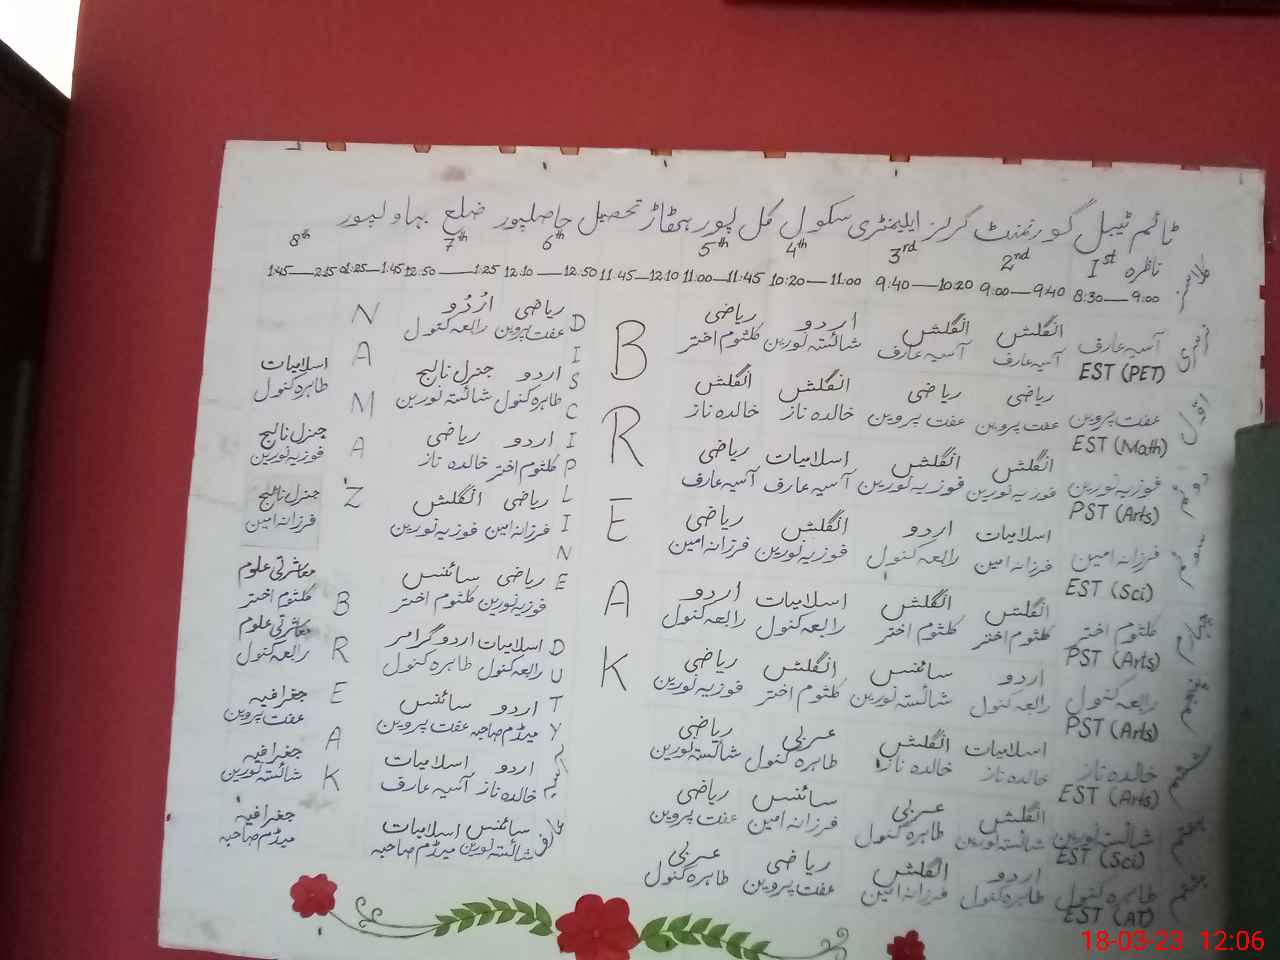 ٹائم ٹیبل گورنمنٹ گرلز ایلیمنٹری سکول گل پور ہمٹھاڑ تحصیل حاصلپور ضلع بہاولپور
کلاسز ناظرہ 1st 2nd 3rd 4th 5th 6th 7th 8th
8:30—9:00 9:00—9:40 9:40—10:20 10:20—11:00 11:00—11:45 11:45—12:10 12:10—12:50 12:50—1:25 01:25—1:45 1:45—2:15
نرسری آسیہ عارف انگلش انگلش اردو ریاضی ریاضی اُردُو
EST (PET) آسیہ عارف آسیہ عارف شائستہ نورین کلثوم اختر عفت پروین رابعہ کنول
اوّل عفت پروین ریاضی ریاضی انگلش انگلش اردو جنرل نالج اسلامیات
EST (Math) عفت پروین عفت پروین خالدہ ناز خالدہ ناز طاہرہ کنول شائستہ نورین طاہرہ کنول
دوئم فوزیہ نورین انگلش انگلش اسلامیات ریاضی اردو ریاضی جنرل نالج
PST (Arts) فوزیہ نورین فوزیہ نورین آسیہ عارف آسیہ عارف کلثوم اختر خالدہ ناز فوزیہ نورین
سوئم فرزانہ امین اسلامیات اردو انگلش ریاضی ریاضی انگلش جنرل نالج
EST (Sci) فرزانہ امین رابعہ کنول فوزیہ نورین فرزانہ امین فرزانہ امین فوزیہ نورین فرزانہ امین
چہارم کلثوم اختر انگلش انگلش اسلامیات اردو ریاضی سائنس معاشرتی علوم
PST (Arts) کلثوم اختر کلثوم اختر رابعہ کنول رابعہ کنول فوزیہ نورین کلثوم اختر کلثوم اختر
پنجم رابعہ کنول اردو سائنس انگلش ریاضی اسلامیات اردو گرامر معاشرتی علوم
PST (Arts) رابعہ کنول شائستہ نورین کلثوم اختر فوزیہ نورین رابعہ کنول طاہرہ کنول رابعہ کنول
ششم خالدہ ناز اسلامیات انگلش عربی ریاضی اردو سائنس جغرافیہ
EST (Arts) خالدہ ناز خالدہ ناز طاہرہ کنول شائستہ نورین میڈم صاحبہ عفت پروین عفت پروین
ہفتم شائستہ نورین انگلش عربی سائنس ریاضی اردو اسلامیات جغرافیہ
EST (Sci) شائستہ نورین طاہرہ کنول فرزانہ امین عفت پروین خالدہ ناز آسیہ عارف شائستہ نورین
ہشتم طاہرہ کنول اردو انگلش ریاضی عربی سائنس اسلامیات جغرافیہ
EST (AT) طاہرہ کنول فرزانہ امین عفت پروین طاہرہ کنول شائستہ نورین میڈم صاحبہ میڈم صاحبہ
BREAK
DISCIPLINE DUTY
NAMAZ BREAK
18-03-23 12:06